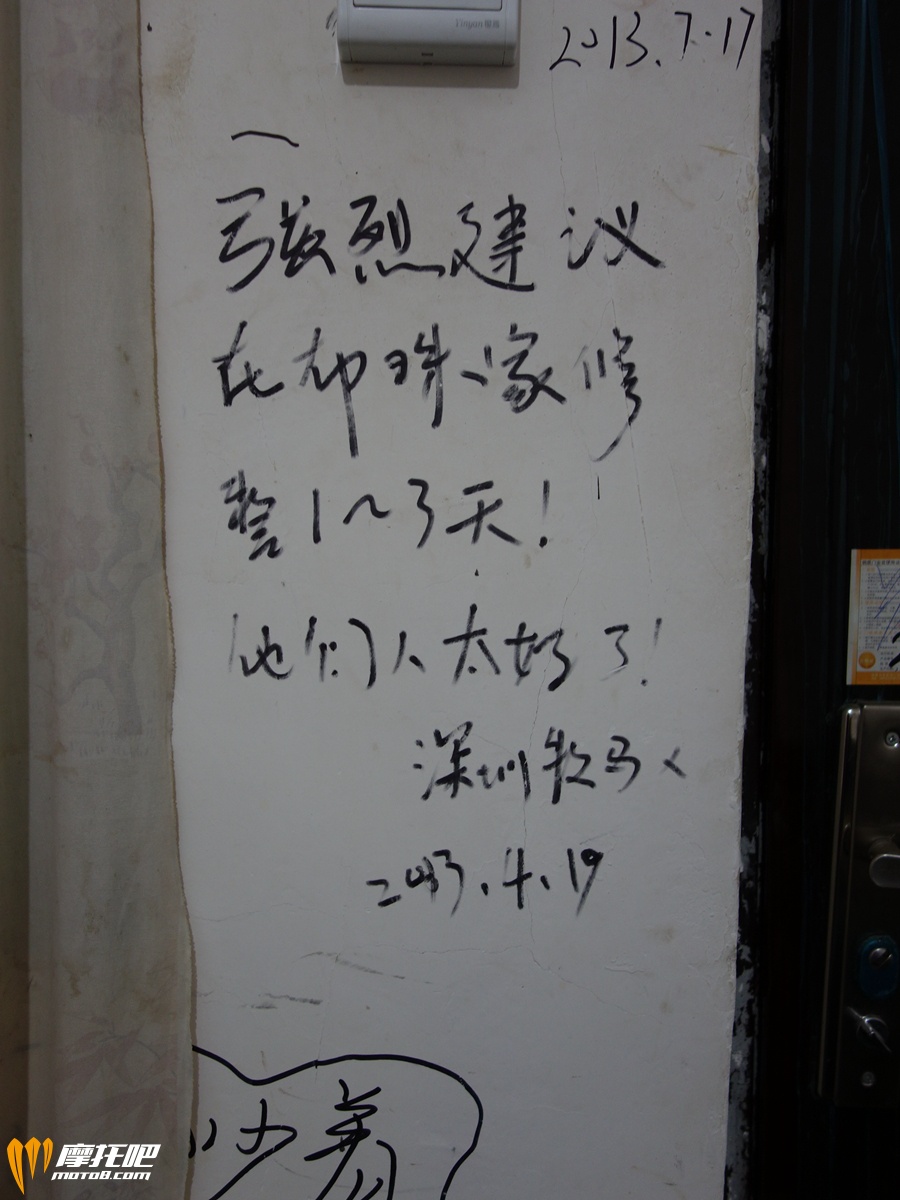 Linyan
2013.7.17
强烈建议
在布珠家修
整1~3天!
他们人太好了!
深圳牧马人
2013.4.19
摩托吧
moto8.com